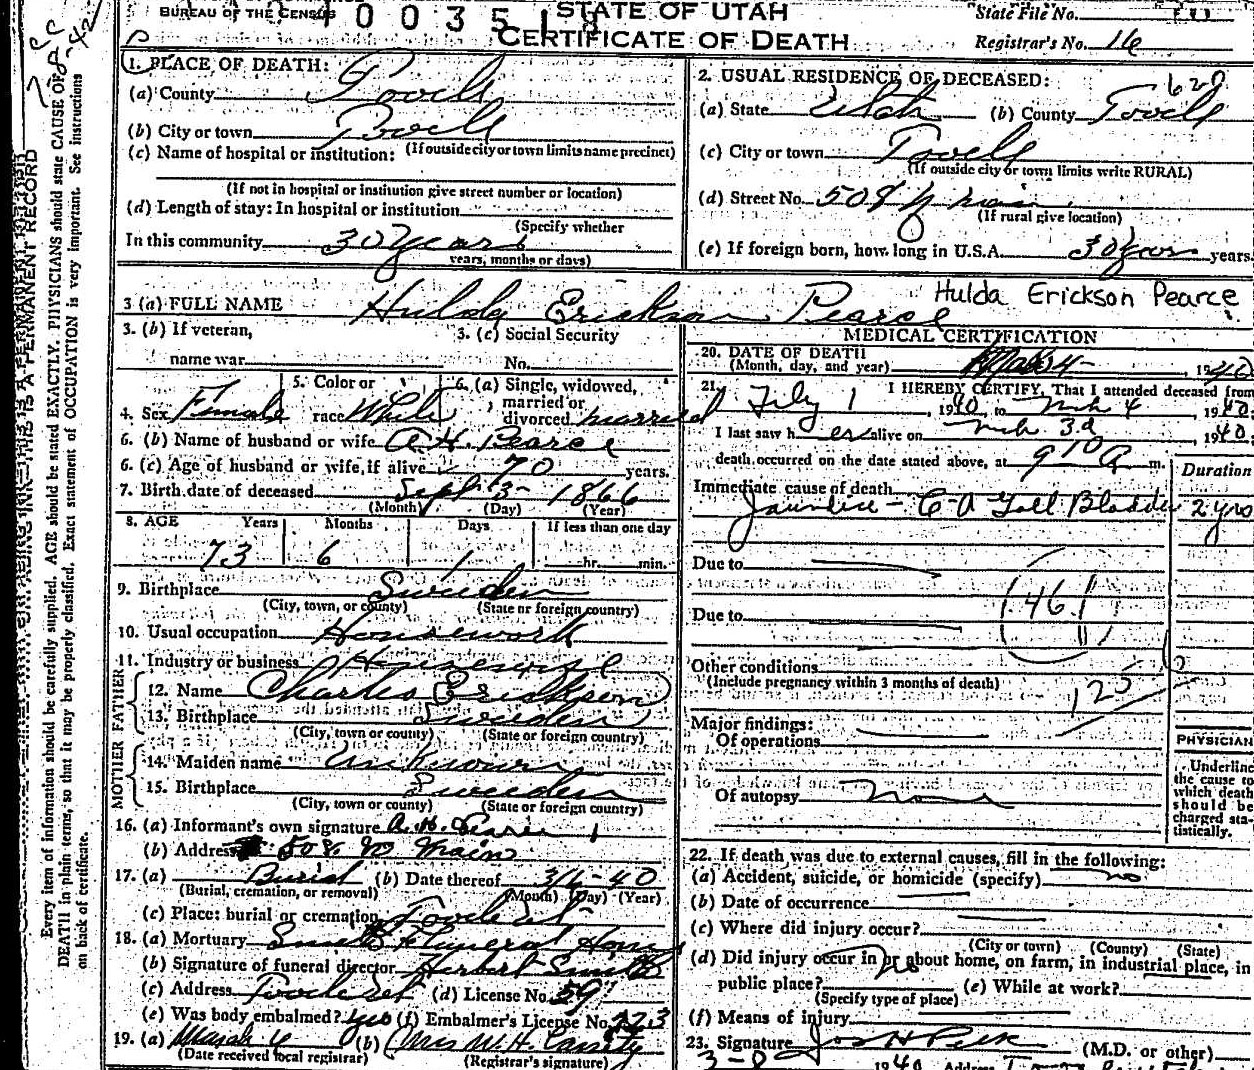 BUREAU OF THE CENSUS
STATE OF UTAH
CERTIFICATE OF DEATH
State File No.
Registrar's No. 16
1. PLACE OF DEATH:
(a) County Tooele
(b) City or town Tooele
(If outside city or town limits name precinct)
(c) Name of hospital or institution:
(If not in hospital or institution give street number or location)
(d) Length of stay: In hospital or institution
(Specify whether
In this community 30 Years
years, months or days)
2. USUAL RESIDENCE OF DECEASED:
(a) State Utah (b) County Tooele
(c) City or town Tooele
(If outside city or town limits write RURAL)
(d) Street No. 508 N main
(If rural give location)
(e) If foreign born, how long in U.S.A. 50 years years.
3 (a) FULL NAME Hulda Erickson Pearce Hulda Erickson Pearce
3. (b) If veteran,
name war
3. (c) Social Security
No.
4. Sex Female
5. Color or
race White
6. (a) Single, widowed,
married or
divorced married
6. (b) Name of husband or wife A. H. Pearce
6. (c) Age of husband or wife, if alive 70 years.
7. Birth date of deceased Sept 3- 1866
(Month) (Day) (Year)
8. AGE Years Months Days If less than one day
73 6 1 hr. min.
9. Birthplace Sweden
(City, town, or county) (State or foreign country)
10. Usual occupation Housework
11. Industry or business Housewife
FATHER
12. Name Charles Erickson
13. Birthplace Sweden
(City, town or county) (State or foreign country)
MOTHER
14. Maiden name Unknown
15. Birthplace Sweden
(City, town or county) (State or foreign country)
16. (a) Informant's own signature A. H. Pearce
(b) Address 508 No Main
17. (a) Burial (b) Date thereof 3/6-40
(Burial, cremation, or removal) (Month) (Day) (Year)
(c) Place: burial or cremation Tooele ut
18. (a) Mortuary Smith Funeral Home
(b) Signature of funeral director Herbert Smith
(c) Address Tooele ut (d) License No. 59
(e) Was body embalmed? yes (f) Embalmer's License No. 223
19. (a) March 6 (b) Mrs W. H. Cassity
(Date received local registrar) (Registrar's signature)
MEDICAL CERTIFICATION
20. DATE OF DEATH
(Month, day, and year) , 1940
21. I HEREBY CERTIFY, That I attended deceased from
July 1, 1940, to Mch 4, 1940.
I last saw her alive on Mch 3d, 1940.
death occurred on the date stated above, at 9 10 A m.
Duration
Immediate cause of death
Jaundice - CA Gall Bladder 2 yrs
Due to
Due to
(46)
Other conditions
(Include pregnancy within 3 months of death)
Major findings:
Of operations
Of autopsy none
PHYSICIAN
Underline
the cause to
which death
should be
charged sta-
tistically.
22. If death was due to external causes, fill in the following:
(a) Accident, suicide, or homicide (specify) no
(b) Date of occurrence
(c) Where did injury occur?
(City or town) (County) (State)
(d) Did injury occur in or about home, on farm, in industrial place, in
public place? no (e) While at work?
(Specify type of place)
(f) Means of injury
23. Signature Jos H Peck (M.D. or other)
1940 Address
PERMANENT RECORD
Every item of information should be carefully supplied. AGE should be stated EXACTLY. PHYSICIANS should state CAUSE OF
DEATH in plain terms, so that it may be properly classified. Exact statement of OCCUPATION is very important. See instructions
on back of certificate.